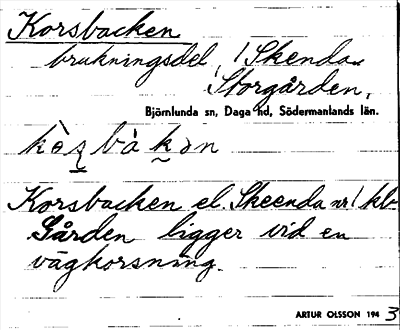 Korsbacken
brukningsdel, 1 Skenda
Storgården,
Björnlunda sn, Daga hd, Södermanlands län.
Korsbacken el. Skeenda nr 1 kb-
Gården ligger vid en
vägkorsning.
ARTUR OLSSON 194 3